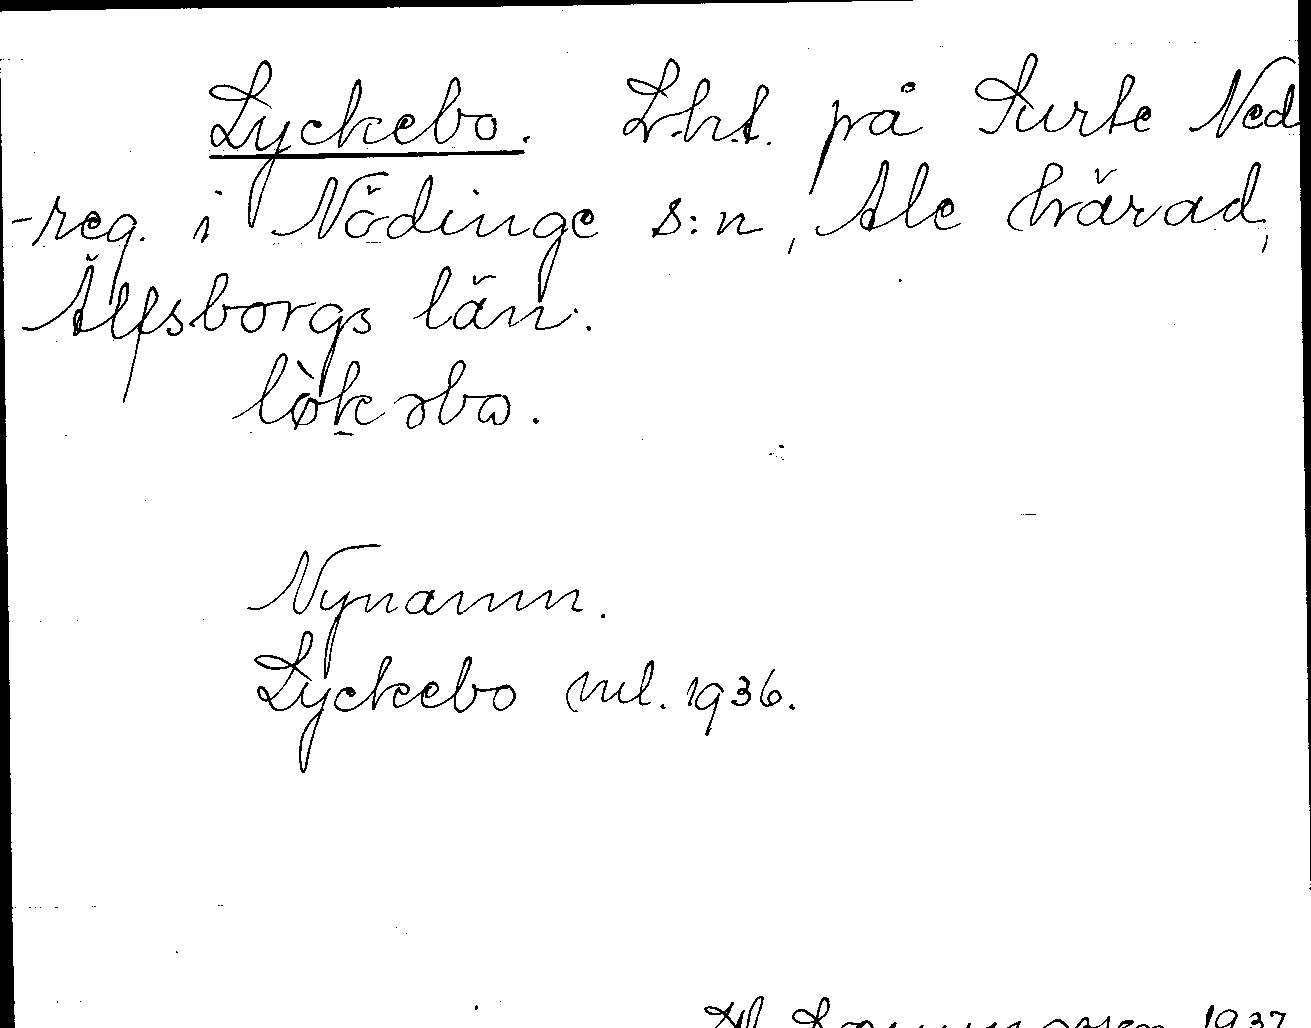 Lyckebo. Lht. på Surte Ned
-reg. i Nödinge s:n, Ale härad,
Älfsborgs län.
lø̀kəbo.
Nynamn.
Lyckebo ml. 1936.
1937